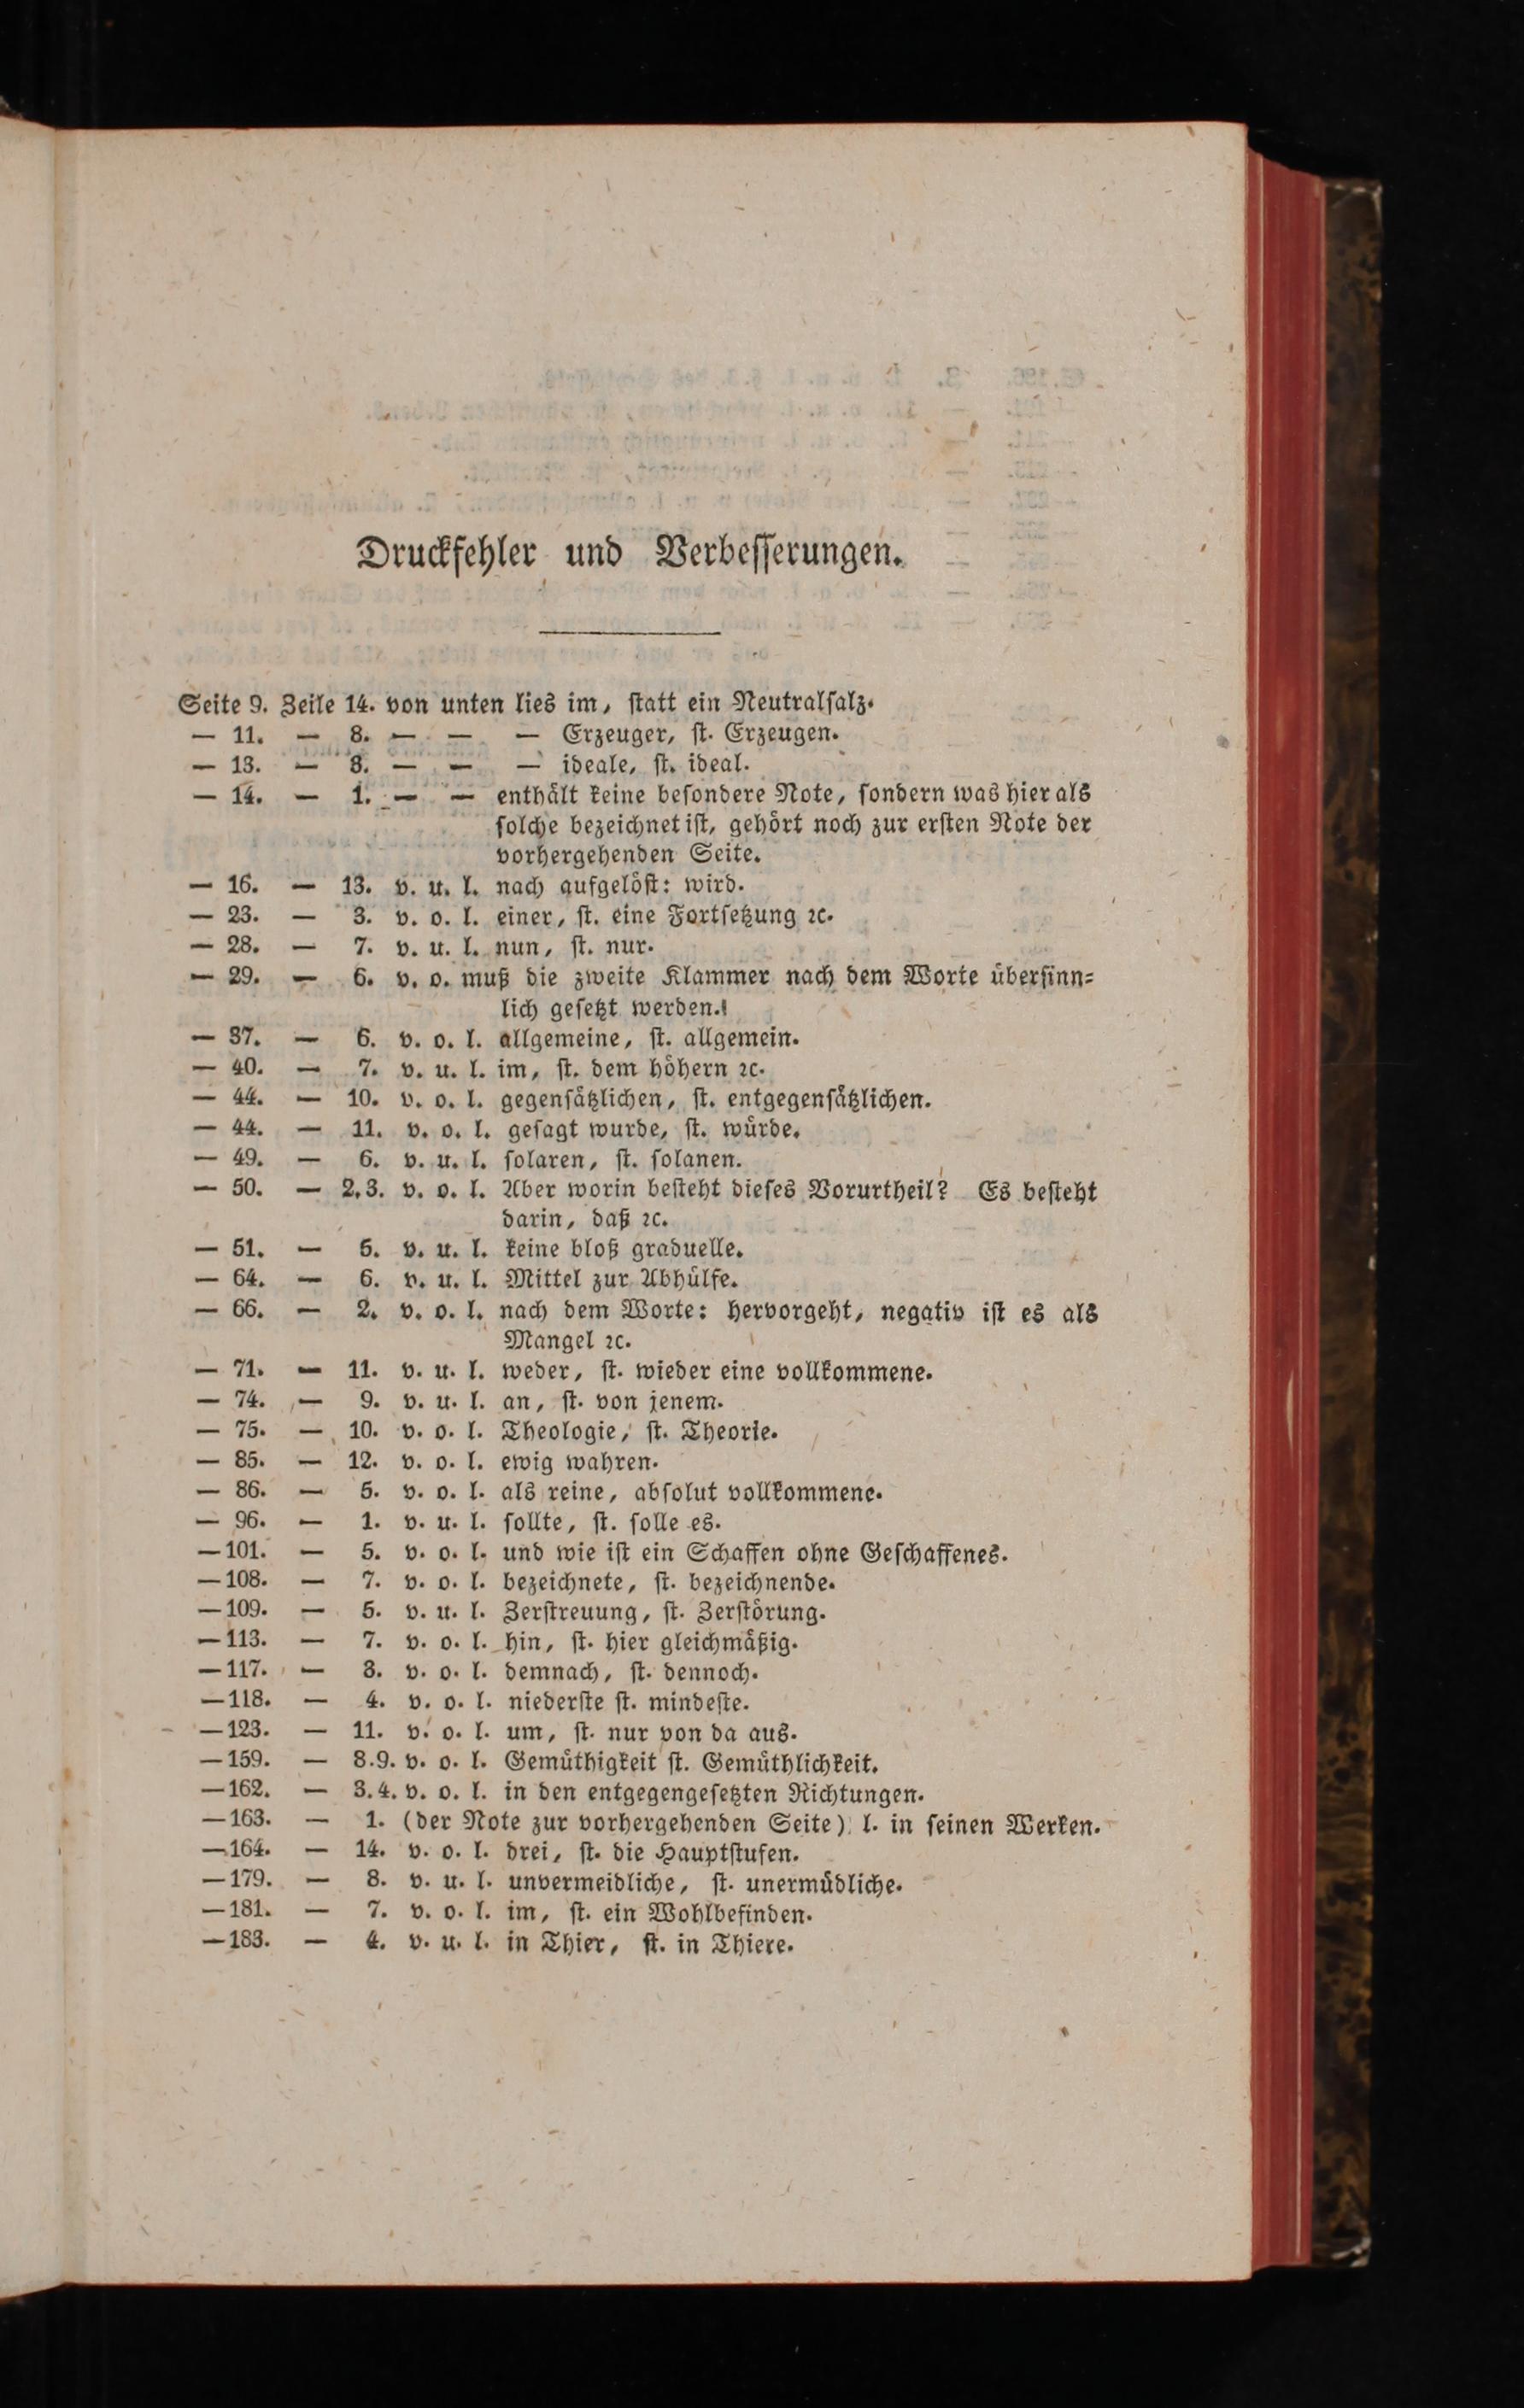 Druckfehler und Verbeſſerungen.
Seite 9. Zeile 14. von unten lies im, ſtatt ein Neutralſalz.
— 11. — 8. — — — Erzeuger, ſt. Erzeugen.
— 13. — 8. — — — ideale, ſt. ideal.
— 14. — 1. — — enthält keine beſondere Note, ſondern was hier als
ſolche bezeichnet iſt, gehört noch zur erſten Note der
vorhergehenden Seite.
— 16. — 13. v. u. l. nach aufgelöſt: wird.
— 23. — 3. v. o. l. einer, ſt. eine Fortſetzung ꝛc.
— 28. — 7. v. u. l. nun, ſt. nur.
— 29. — 6. v. o. muß die zweite Klammer nach dem Worte überſinn⸗
lich geſetzt werden.
— 37. — 6. v. o. l. allgemeine, ſt. allgemein.
— 40. — 7. v. u. l. im, ſt. dem höhern ꝛc.
— 44. — 10. v. o. l. gegenſätzlichen, ſt. entgegenſätzlichen.
— 44. — 11. v. o. l. geſagt wurde, ſt. würde.
— 49. — 6. v. u. l. ſolaren, ſt. ſolanen.
— 50. — 2.3. v. o. l. Aber worin beſteht dieſes Vorurtheil? Es beſteht
darin, daß ꝛc.
— 51. — 5. v. u. l. keine bloß graduelle.
— 64. — 6. v. u. l. Mittel zur Abhülfe.
— 66. — 2. v. o. l. nach dem Worte: hervorgeht, negativ iſt es als
Mangel ꝛc.
— 71. — 11. v. u. l. weder, ſt. wieder eine vollkommene.
— 74. — 9. v. u. l. an, ſt. von jenem.
— 75. — 10. v. o. l. Theologie, ſt. Theorie.
— 85. — 12. v. o. l. ewig wahren.
— 86. — 5. v. o. l. als reine, abſolut vollkommene.
— 96. — 1. v. u. l. ſollte, ſt. ſolle es.
— 101. — 5. v. o. l. und wie iſt ein Schaffen ohne Geſchaffenes.
— 108. — 7. v. o. l. bezeichnete, ſt. bezeichnende.
— 109. — 5. v. u. l. Zerſtreuung, ſt. Zerſtörung.
— 113. — 7. v. o. l. hin, ſt. hier gleichmäßig.
— 117. — 3. v. o. l. demnach, ſt. dennoch.
— 118. — 4. v. o. l. niederſte ſt. mindeſte.
— 123. — 11. v. o. l. um, ſt. nur von da aus.
— 159. — 8.9. v. o. l. Gemüthigkeit ſt. Gemüthlichkeit.
— 162. — 3.4. v. o. l. in den entgegengeſetzten Richtungen.
— 163. — 1. (der Note zur vorhergehenden Seite) l. in ſeinen Werken.
— 164. — 14. v. o. l. drei, ſt. die Hauptſtufen.
— 179. — 8. v. u. l. unvermeidliche, ſt. unermüdliche.
— 181. — 7. v. o. l. im, ſt. ein Wohlbefinden.
— 183. — 4. v. u. l. in Thier, ſt. in Thiere.